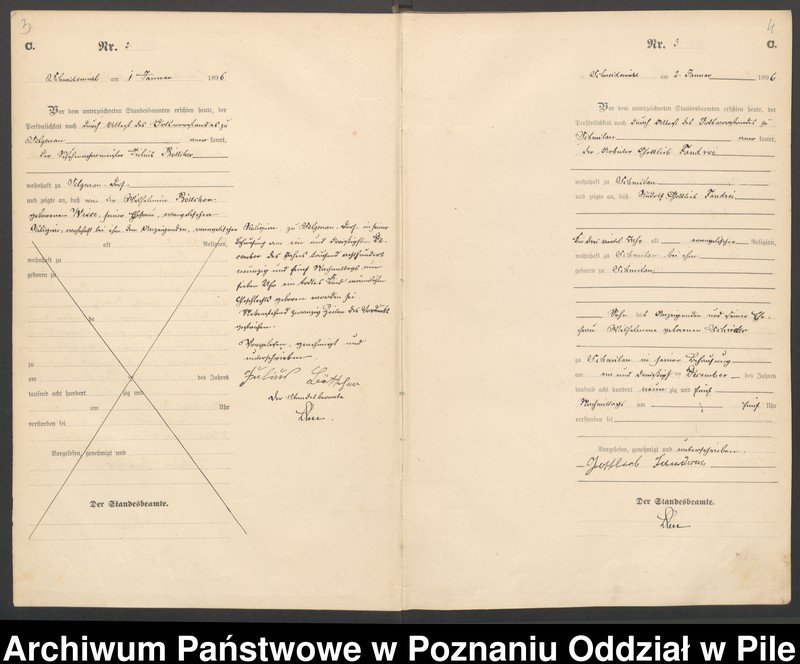 3
C. Nr. 2
Schneidemühl am 1 Januar 1896
Vor dem unterzeichneten Standesbeamten erschien heute, der
Persönlichkeit nach durch Attest des Ortsvorstandes zu
kannt,
der Julius Böttcher
wohnhaft zu
und zeigte an, daß von der Wilhelmine Böttcher
geborenen Wiese, seiner Ehefrau, evangelischer
Religion, wohnhaft bei ihm dem Anzeigenden, evangelischer
alt Religion,
wohnhaft zu
geboren zu
zu
am des Jahres
tausend acht hundert zig und
um Uhr
verstorben sei
Vorgelesen, genehmigt und
Der Standesbeamte.
Religion, zu in seiner
Behausung am ein und dreißigsten De-
cember des Jahres tausend achthundert
neunzig und fünf Nachmittags um
sieben Uhr ein todtes Kind männlichen
Geschlechts geboren worden sei
Nebenstehend zwanzig Zeilen des Vordrucks
gestrichen.
Vorgelesen, genehmigt und
unterschrieben
Julius Böttcher
Der Standesbeamte
4
Nr. 3 C.
Schneidemühl am 2. Januar 1896
Vor dem unterzeichneten Standesbeamten erschien heute, der
Persönlichkeit nach durch Attest des Ortsvorstandes zu
Schmilau kannt,
der Arbeiter Gottlieb Fandrei
wohnhaft zu Schmilau
und zeigte an, daß Rudolf Gottlieb Fandrei
alt evangelischer Religion,
wohnhaft zu Schmilau bei ihm
geboren zu Schmilau
Sohn des Anzeigenden und seiner Ehe-
frau Wilhelmine geborenen
zu Schmilau in seiner Behausung
am ein und dreißigsten December des Jahres
tausend acht hundert neunzig und fünf
Nachmittags um fünf Uhr
verstorben sei
Vorgelesen, genehmigt und unterschrieben
Gottlieb
Der Standesbeamte.
Archiwum Państwowe w Poznaniu Oddział w Pile